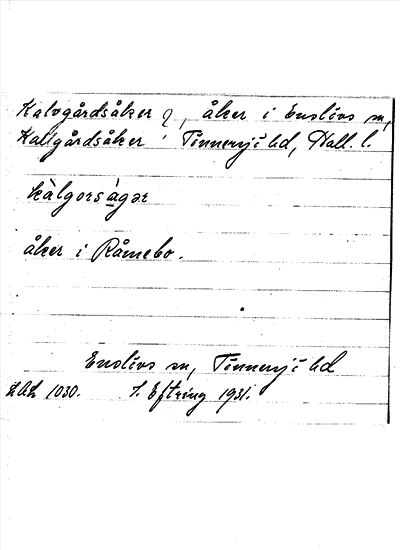 Kalvgårdsåker ?, åker i Enslövs sn,
Kallgårdsåker Tönnersjö hd, Hall. l.
kàlgorsàgər
åker i Råmebo.
Enslövs sn, Tönnersjö hd
LAL 1030. S. Eftring 1931.